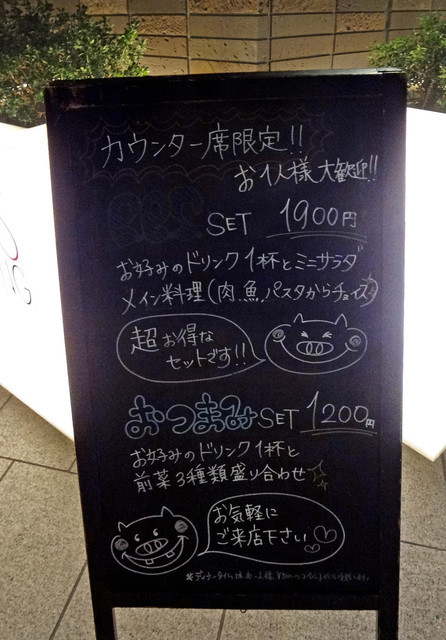 カウンター席限定!!
お1人様大歓迎!!
SET 1900円
お好みのドリンク1杯とミニサラダ
メイン料理(肉、魚、パスタからチョイス)
超お得な
セットです!!
おつまみSET 1200円
お好みのドリンク1杯と
前菜3種類盛り合わせ
お気軽に
ご来店下さい